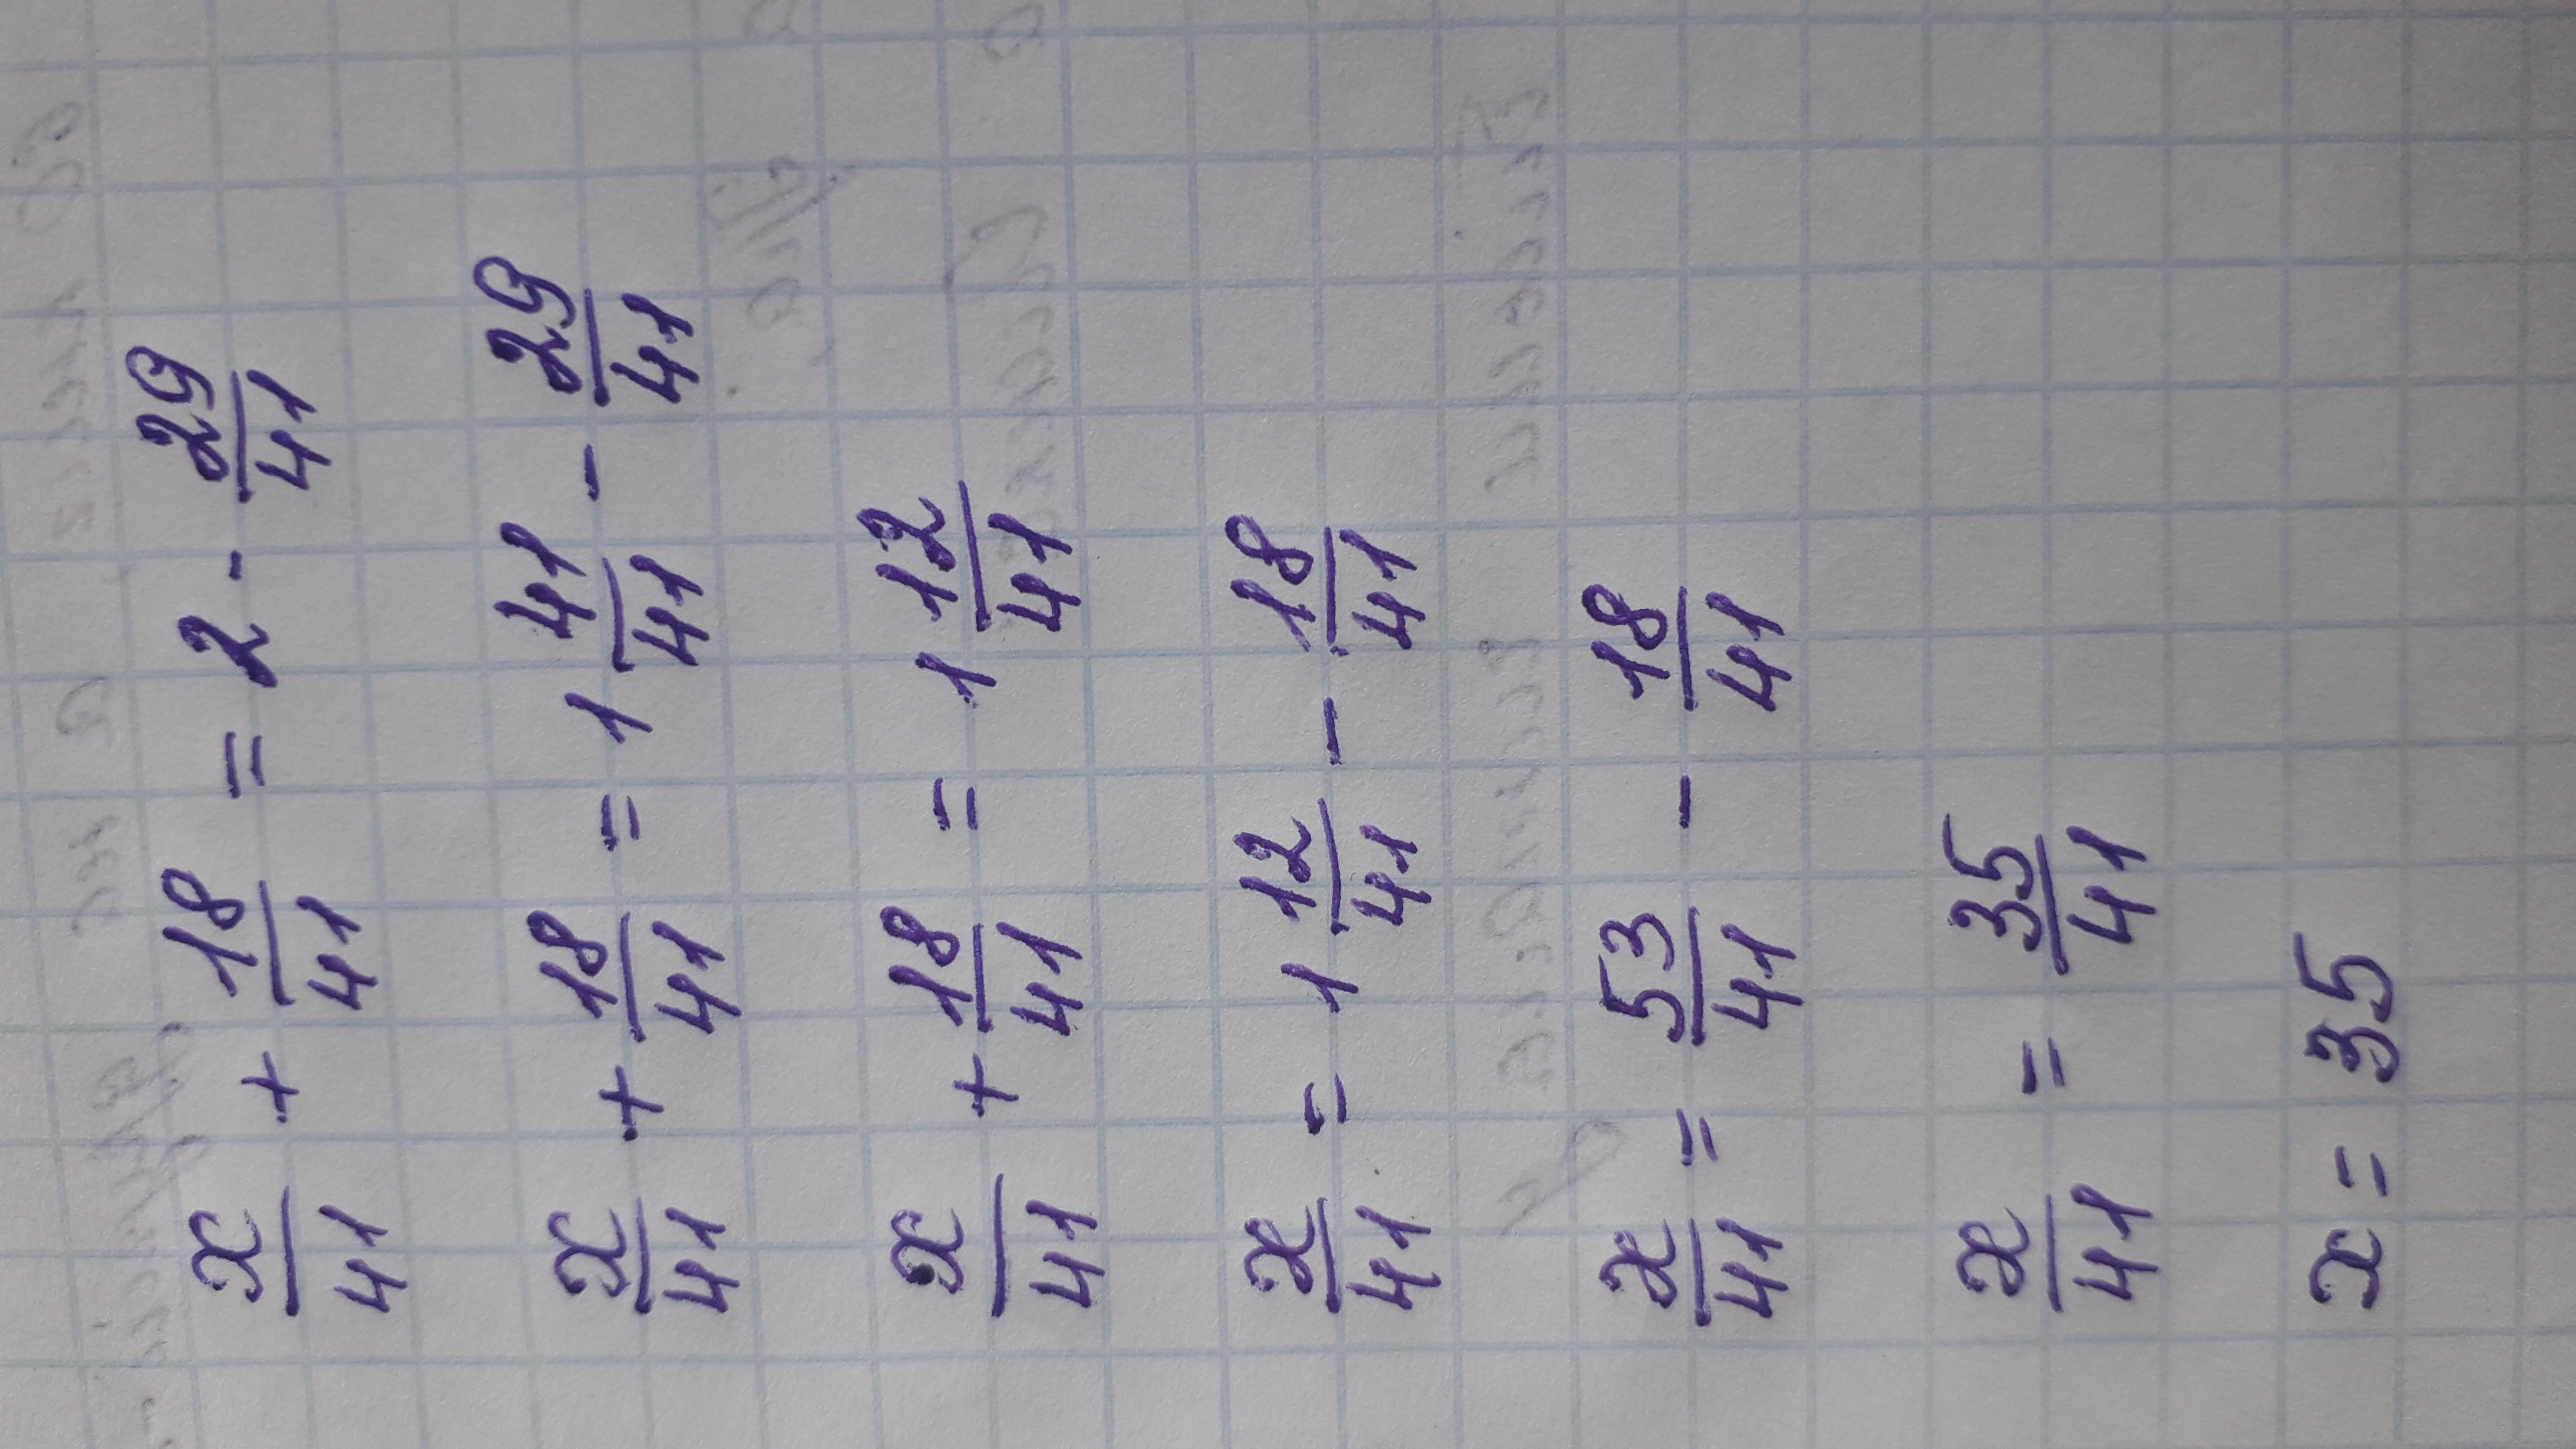 x/41 + 18/41 = 2 - 29/41
x/41 + 18/41 = 1 41/41 - 29/41
x/41 + 18/41 = 1 12/41
x/41 = 1 12/41 - 18/41
x/41 = 53/41 - 18/41
x/41 = 35/41
x = 35